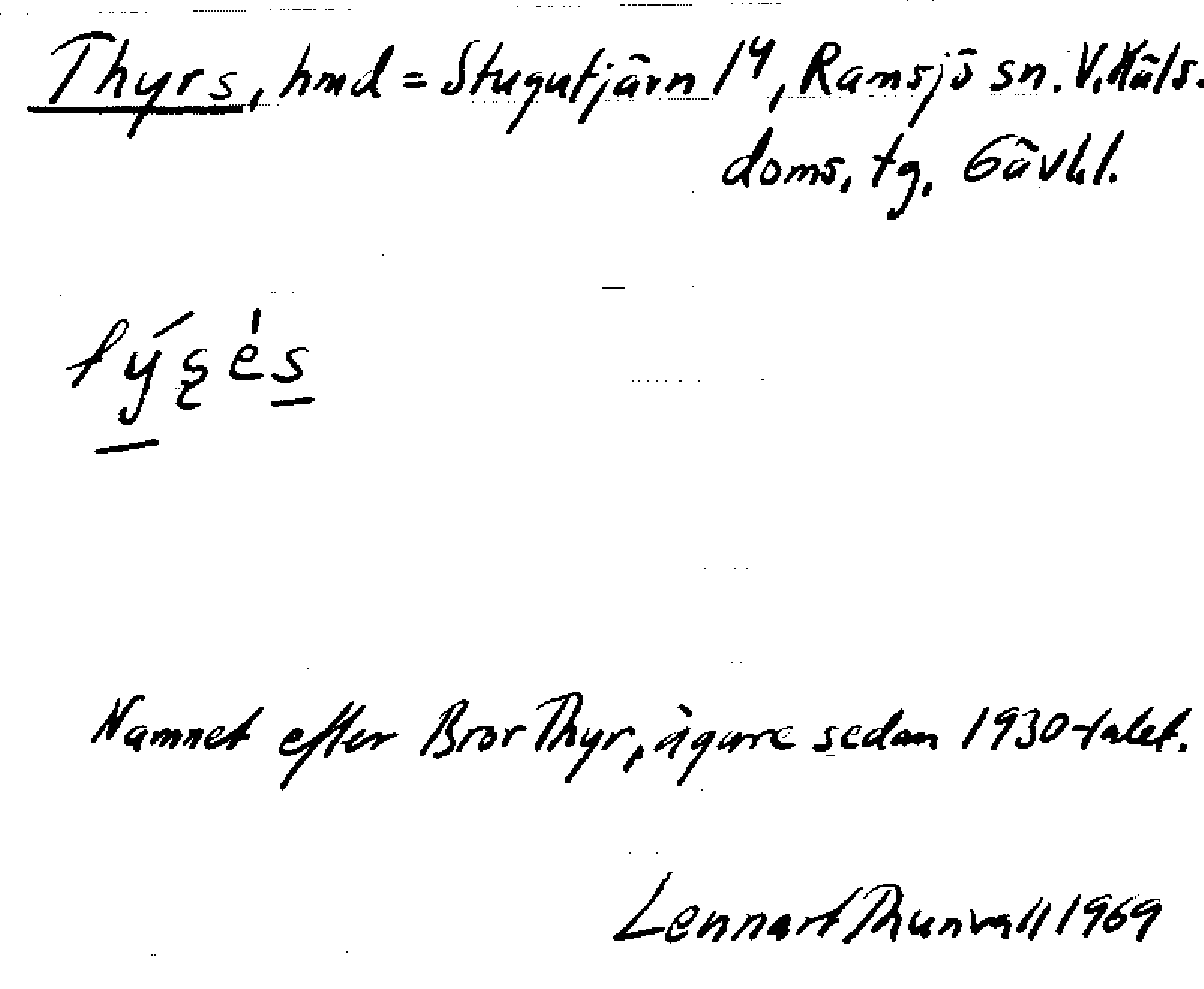 Thyrs, hmd = Stugutjärn 1⁴, Ramsjö sn. V. Häls.
doms. tg. Gävl.
Namnet efter Bror Thyr, ägare sedan 1930-talet.
Lennart Thunvall 1969